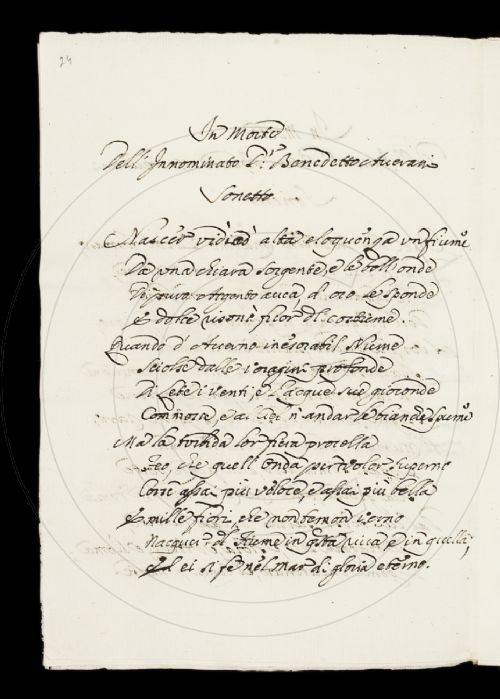 24
In Morte
Dell' Innominato Benedetto Averani
Sonetto
Nascer vid' io d' alta eloquenza un fiume
Da una chiara sorgente, e le bell' onde
Di puro Argento avea d' oro le sponde
E dolce fior di costume.
Quando d' Averno inesorabil Nume
Sciolse dalle voragini profonde
Di Lete i venti e l' acque sue gioconde
Commosse, e n' andar le bianche spume
Ma la torbida lor fiera procella
Feo, che quell' Onda per voler superno
Corre assai più veloce, e assai più bella
E mille fiori, che non temon verno
Nacquer al fiume in questa riva e in quella,
Ed ei si fè nel mar di gloria eterno.